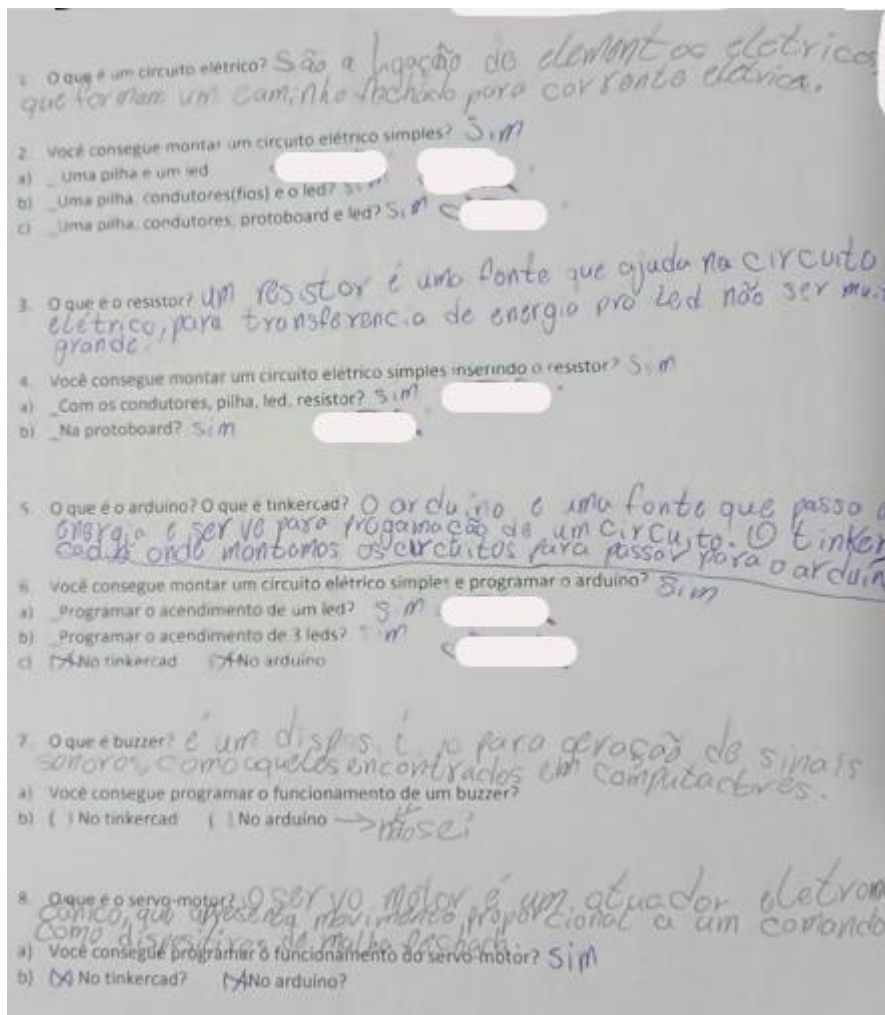 1. O que é um circuito elétrico? São a ligação de elementos eletricos
que formam um caminho fechado para corrente elétrica.
2. Você consegue montar um circuito elétrico simples? Sim
a) _ Uma pilha e um led
b) _Uma pilha, condutores(fios) e o led?
c) _Uma pilha, condutores, protoboard e led? Sim
3. O que é o resistor? Um resistor é uma fonte que ajuda na circuito
elétrico, para transferencia de energia pro led não ser
grande.
4. Você consegue montar um circuito eletrico simples inserindo o resistor? Sim
a) _Com os condutores, pilha, led, resistor? Sim
b) _Na protoboard? Sim
5. O que é o arduino? O que é tinkercad? O arduino é uma fonte que passa
energia e serve para progamação de um circuito. O tinker
cad é onde montamos os circuitos para passar para o arduin
6. Você consegue montar um circuito elétrico simples e programar o arduino? Sim
a) _Programar o acendimento de um led? Sim
b) _Programar o acendimento de 3 leds? Sim
c) (X) No tinkercad (X) No arduino
7. O que é buzzer? é um dispositivo para geração de sinais
sonoros, como aqueles encontrados em computadores.
a) Você consegue programar o funcionamento de um buzzer?
b) ( ) No tinkercad ( ) No arduino → não sei
8. O que é o servo-motor? O servo motor é um atuador eletrom
canico, que apresenta movimento proporcional a um comando
como dispositivos de malha fechada.
a) Você consegue programar o funcionamento do servo-motor? Sim
b) (X) No tinkercad? (X) No arduino?